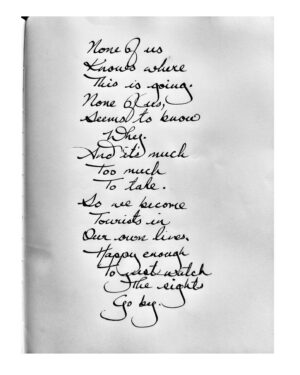 None of us
Knows where
This is going.
None of us,
Seems to know
Why.
And it's much
Too much
To take.
So we become
Tourists in
Our own lives,
Happy enough
To just watch
The sights
Go by.